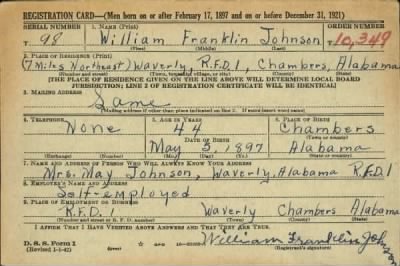 REGISTRATION CARD—(Men born on or after February 17, 1897 and on or before December 31, 1921)
SERIAL NUMBER 1. NAME (Print) ORDER NUMBER
T 98 William Franklin Johnson T10,349
(First) (Middle) (Last)
2. PLACE OF RESIDENCE (Print)
(7 Miles Northeast) Waverly, R.F.D.1, Chambers, Alabama
(Number and street) (Town, township, village, or city) (County) (State)
[THE PLACE OF RESIDENCE GIVEN ON THE LINE ABOVE WILL DETERMINE LOCAL BOARD
JURISDICTION; LINE 2 OF REGISTRATION CERTIFICATE WILL BE IDENTICAL]
3. MAILING ADDRESS
Same
[Mailing address if other than place indicated on line 2. If same insert word same]
4. TELEPHONE 5. AGE IN YEARS 6. PLACE OF BIRTH
None 44 Chambers
DATE OF BIRTH (Town or county)
May 3, 1897 Alabama
(Exchange) (Number) (Mo.) (Day) (Yr.) (State or country)
7. NAME AND ADDRESS OF PERSON WHO WILL ALWAYS KNOW YOUR ADDRESS
Mrs. May Johnson, Waverly, Alabama R.F.D.1
8. EMPLOYER'S NAME AND ADDRESS
Self-employed
9. PLACE OF EMPLOYMENT OR BUSINESS
R.F.D.1 Waverly Chambers Alabama
(Number and street or R. F. D. number) (Town) (County) (State)
I AFFIRM THAT I HAVE VERIFIED ABOVE ANSWERS AND THAT THEY ARE TRUE.
D. S. S. Form 1
(Revised 1-1-42) William Franklin Johnson